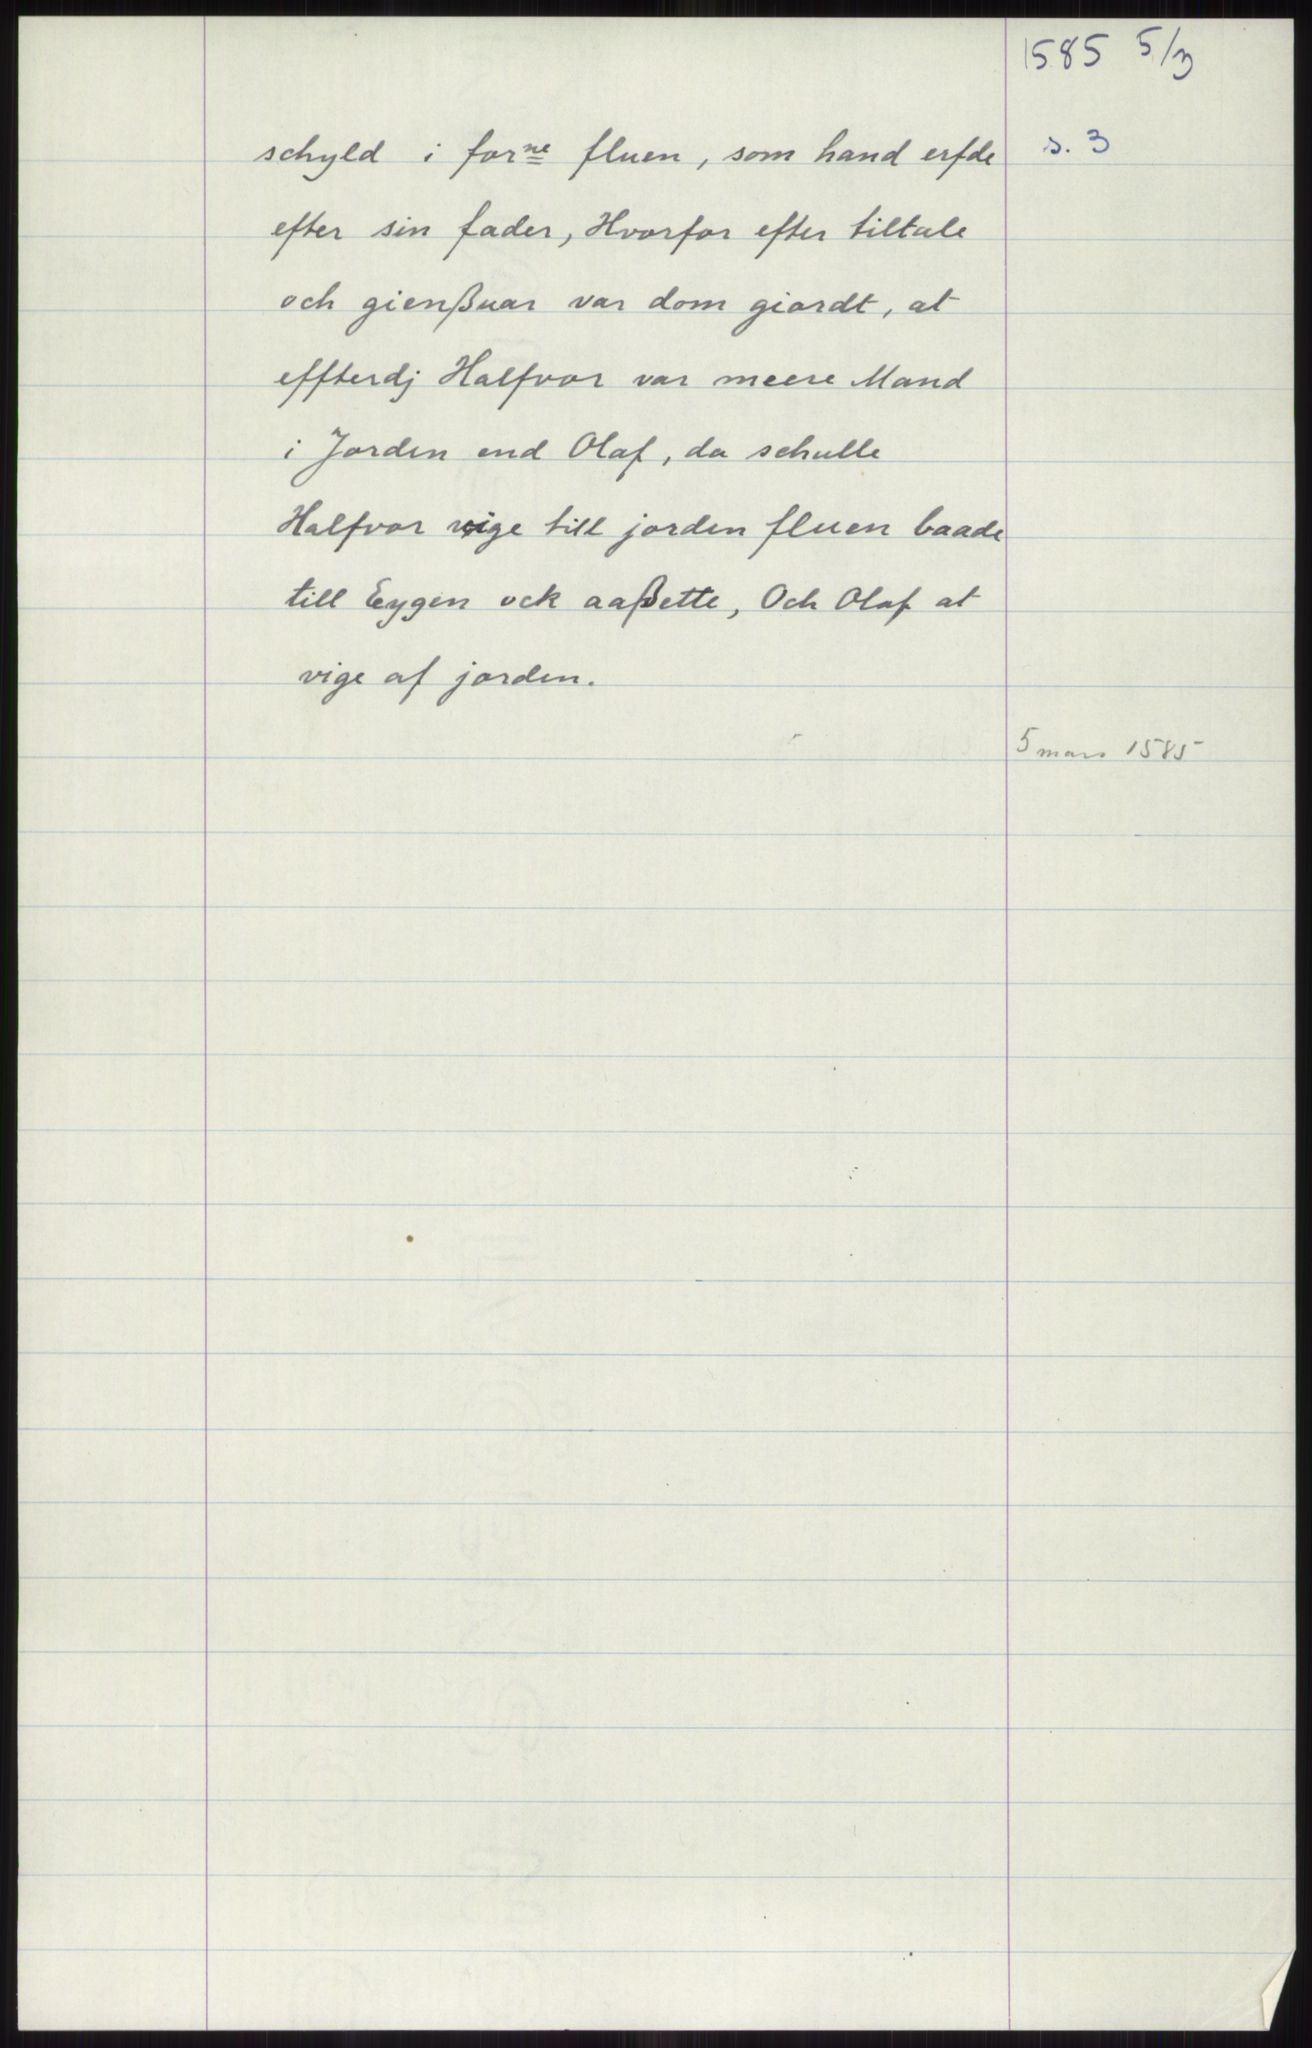 1585 5/3
schyld i forne fluen, som hand erfde s. 3
efter sin fader, Hvorfor efter tiltale
och gienßuar var dom giordt, at
effterdj Halfvor var meere Mand
i Jorden end Olaf, da schulle
Halfvor vige till jorden fluen baade
till Eygen ock aaßette, Och Olaf at
vige af jorden.
5 mars 1585